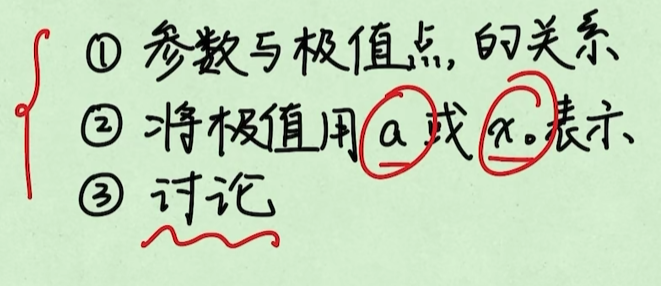 ① 参数与极值点,的关系
② 将极值用a或x₀表示
③ 讨论